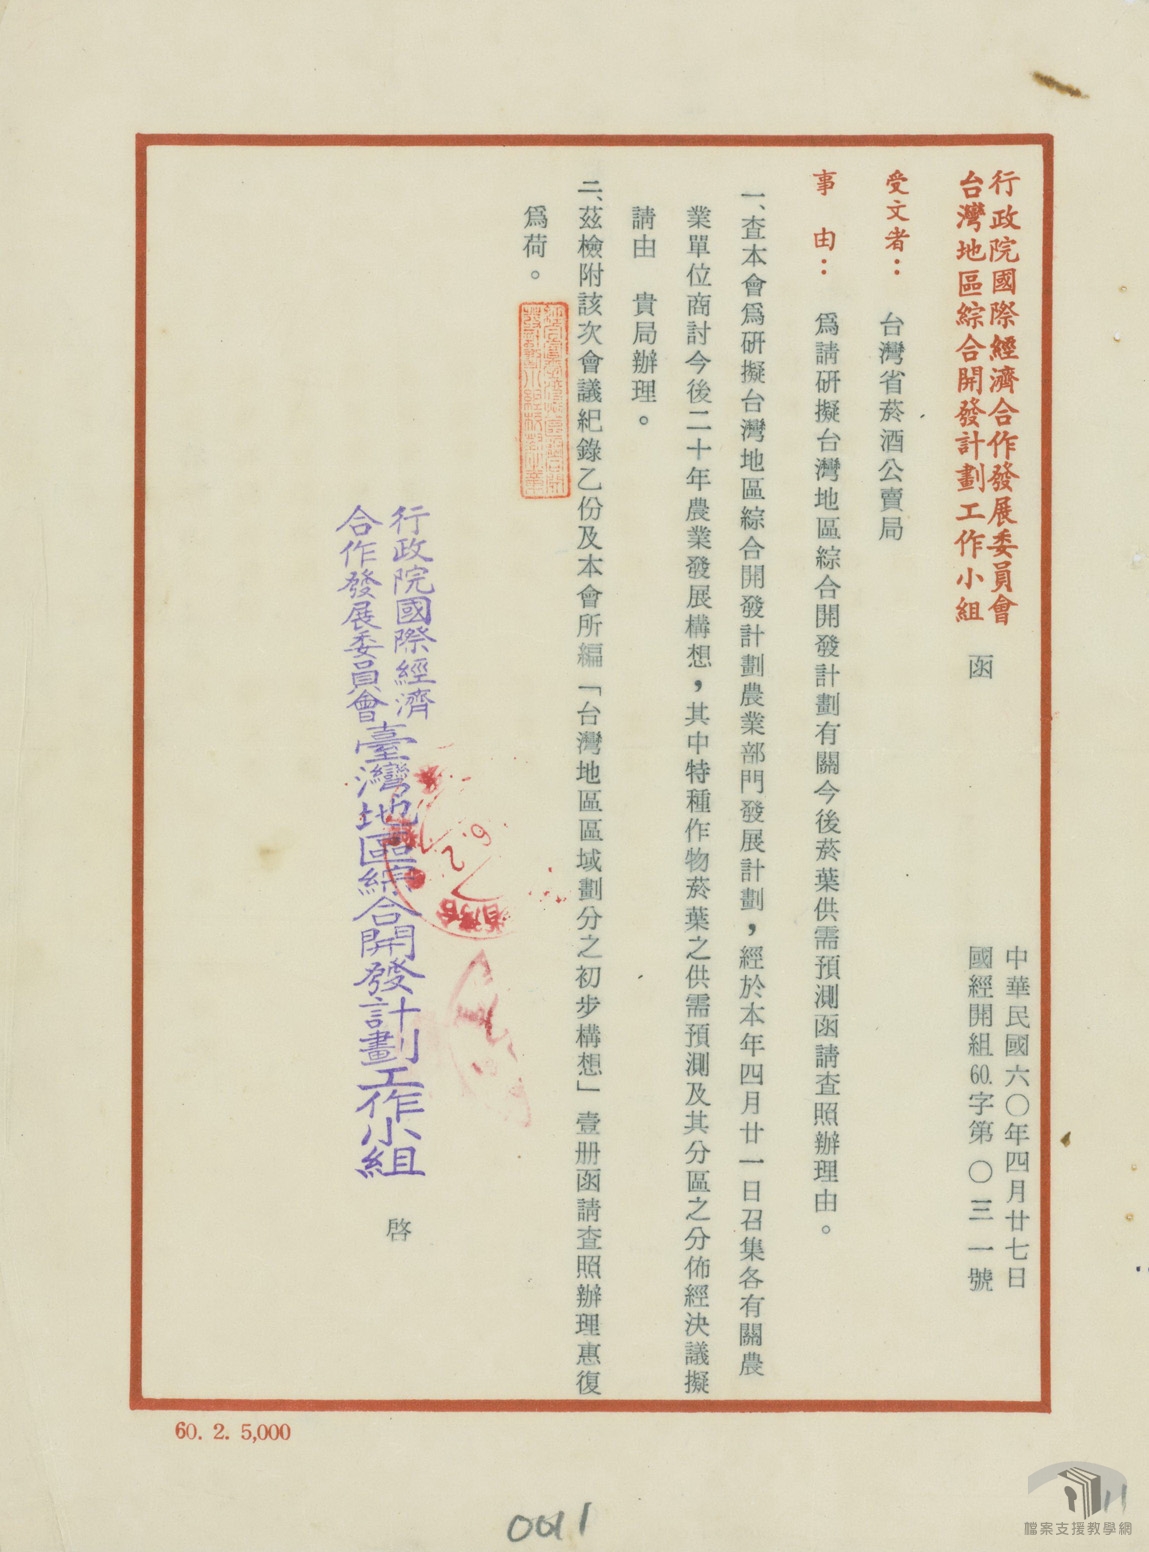 行政院國際經濟合作發展委員會
台灣地區綜合開發計劃工作小組 函
中華民國六〇年四月廿七日
國經開組60.字第〇三一號
受文者：台灣省菸酒公賣局
事由：為請研擬台灣地區綜合開發計劃有關今後菸葉供需預測函請查照辦理由。
一、查本會為研擬台灣地區綜合開發計劃農業部門發展計劃，經於本年四月廿一日召集各有關農
業單位商討今後二十年農業發展構想，其中特種作物菸葉之供需預測及其分區之分佈經決議擬
請由 貴局辦理。
二、茲檢附該次會議紀錄乙份及本會所編「台灣地區區域劃分之初步構想」壹册函請查照辦理惠復
為荷。
行政院國際經濟
合作發展委員會
臺灣地區綜合開發計劃工作小組 啓
60. 2. 5,000
0011
檔案支援教學網